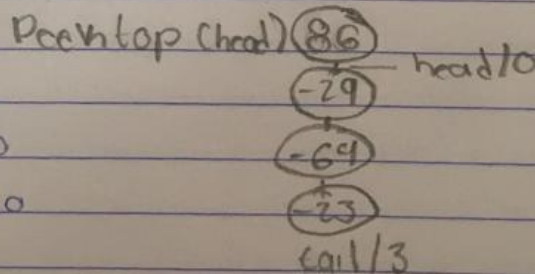 Peek top (head) 86
head/0
-29
-64
-23
tail/3